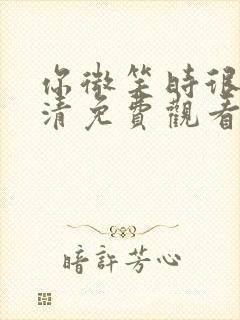 你微笑時很
清免費觀看
暗許芳心